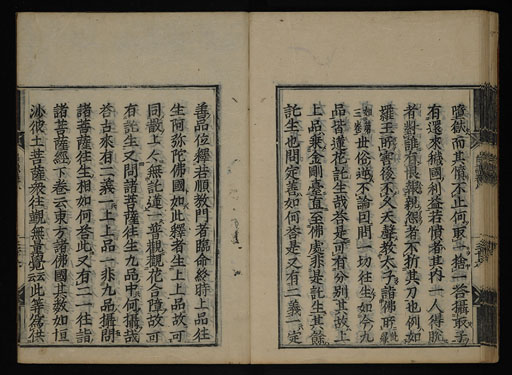 墮獄而其慎不止何取一捨一答攝取子
有還來穢國利益若憤者其内一人得脫
者對誰有恨報親怨者不折其刀也例如
羅王所害後不久天聲教太子諸佛所
世俗趣不論因問一切往生如今九
品皆蓮花託生哉答是可有分別其故上
上品乘金剛臺直至佛處非是託生其餘
託生也問定善如何答是又有二義一定
善品位釋若順教門者臨命終時上品往
生阿弥陀佛國如此釋者生上上品故可
同散上人無託蓮一普觀觀花合障故可
有託生又問諸菩薩往生九品中何攝哉
答古來有二義一上上品一非九品攝問
諸菩薩往生相如何答此又有二一往詣
諸菩薩經下巻云東方諸佛國其數如恒
沙彼土菩薩衆往覲無量覺云云此等爲供